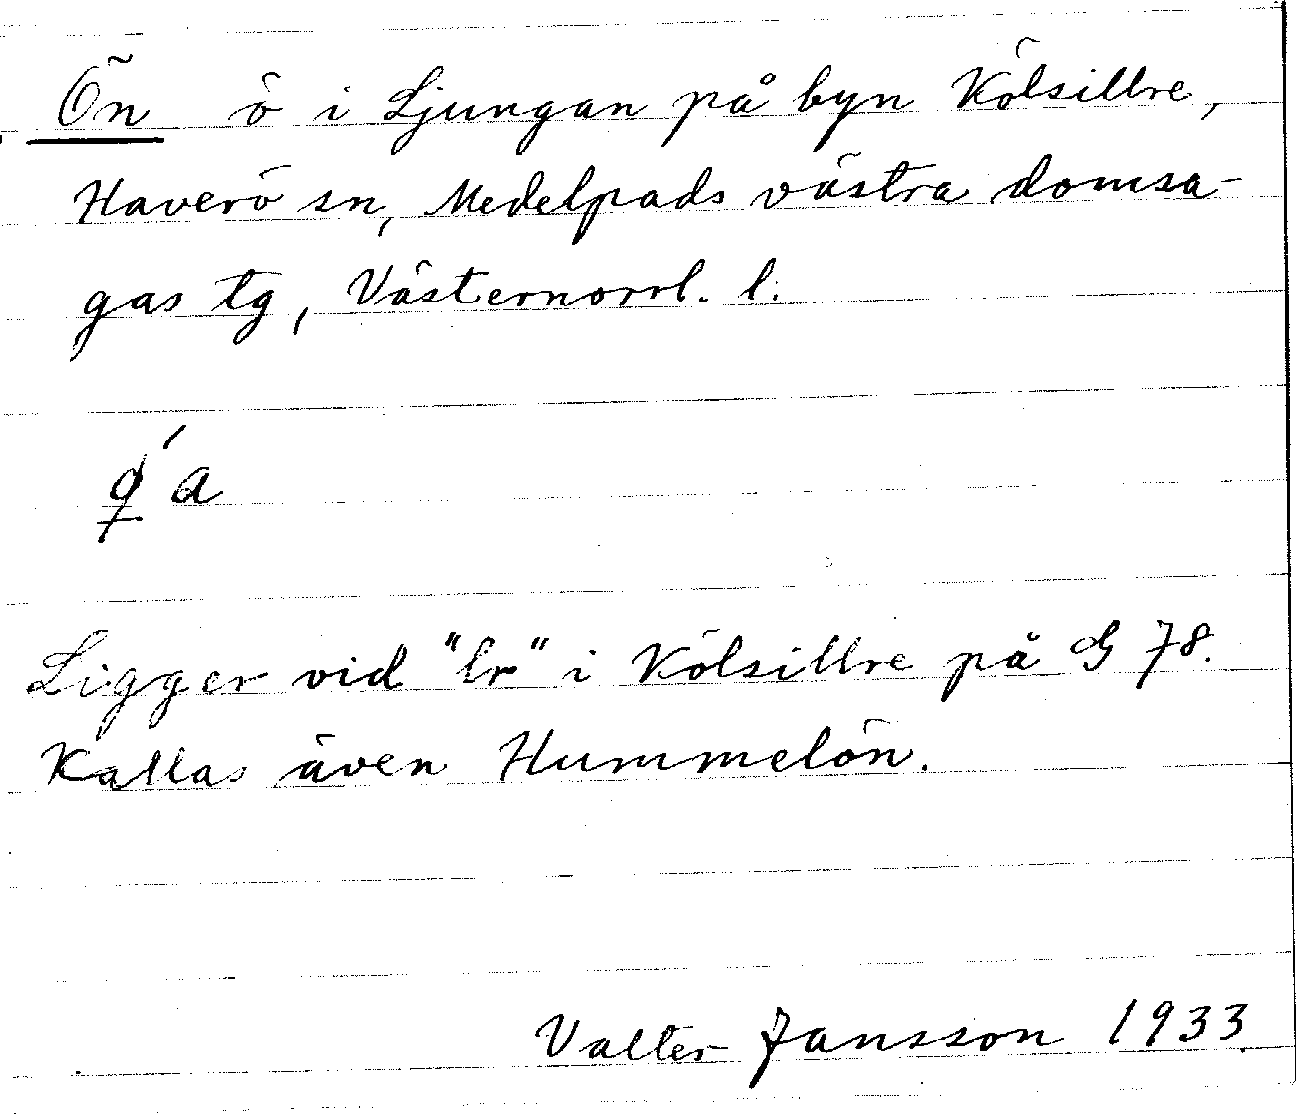 Ön ö i Ljungan på byn Kölsillre,
Haverö sn, Medelpads västra domsa-
gas tg, Västernorrl. l.
Ligger vid "lr" i Kölsillre på G 78.
Kallas även Hummelön.
Valter Jansson 1933.